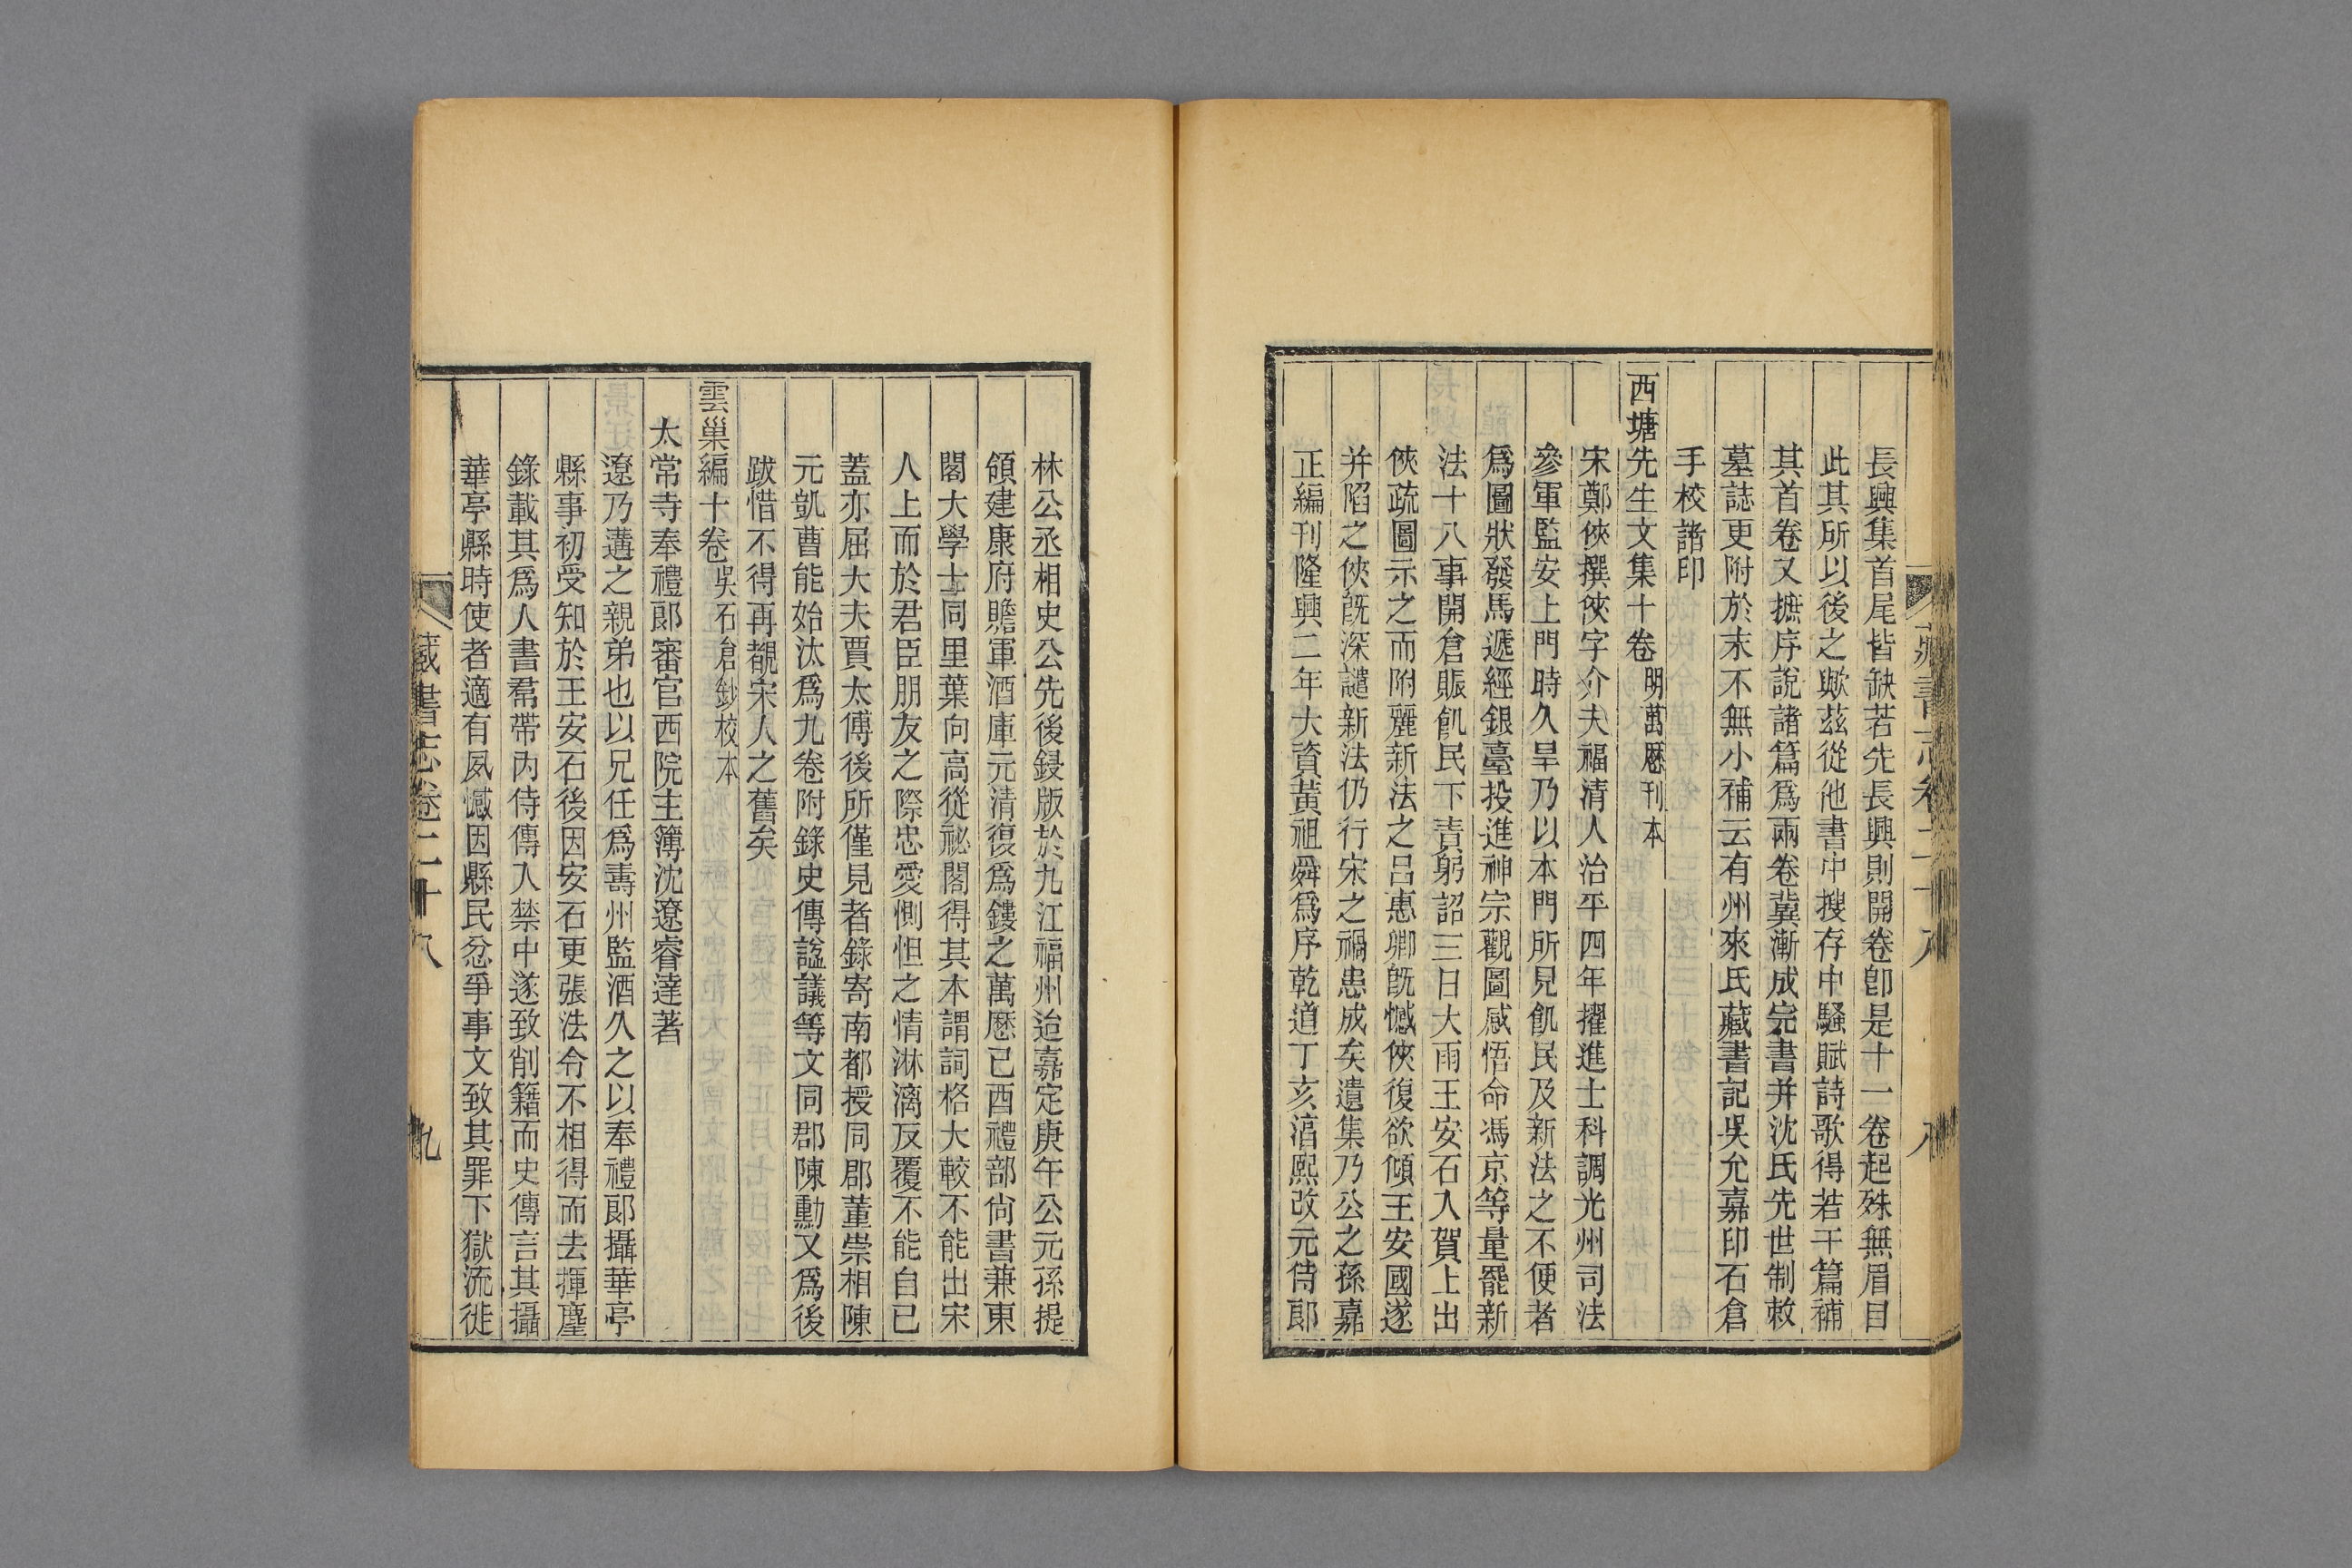 長興集首尾皆缺若先長興則開卷卽是十一卷起殊無眉目
此其所以後之歟茲從他書中搜存中騷賦詩歌得若干篇補
其首卷又摭序說諸篇爲兩卷冀漸成完書并沈氏先世制敕
墓誌更附於末不無小補云有州來氏藏書記吳允嘉印石倉
手校諸印
西塘先生文集十卷 明萬厯刊本
宋鄭俠撰俠字介夫福清人治平四年擢進士科調光州司法
參軍監安上門時久旱乃以本門所見飢民及新法之不便者
爲圖狀發馬遞經銀臺投進神宗觀圖感悟命馮京等量罷新
法十八事開倉賑飢民下責躬詔三日大雨王安石入賀上出
俠疏圖示之而附麗新法之呂惠卿旣憾俠復欲傾王安國遂
并陷之俠旣深譴新法仍行宋之禍患成矣遺集乃公之孫嘉
正編刊隆興二年大資黃祖舜爲序乾道丁亥淸熙改元侍郞
藏書志卷二十八 八
林公丞相史公先後鋟版於九江福州迨嘉定庚午公元孫提
領建康府贍軍酒庫元清復爲鏤之萬厯己酉禮部尙書兼東
閣大學士同里葉向高從祕閣得其本謂詞格大較不能出宋
人上而於君臣朋友之際忠愛惻怛之情淋漓反覆不能自已
蓋亦屈大夫賈太傅後所僅見者錄寄南都授同郡董崇相陳
元凱曹能始汰爲九卷附錄史傳諡議等文同郡陳勳又爲後
跋惜不得再覩宋人之舊矣
雲巢編十卷 吳石倉鈔校本
太常寺奉禮郞審官西院主簿沈遼睿達著
遼乃遘之親弟也以兄任爲壽州監酒久之以奉禮郞攝華亭
縣事初受知於王安石後因安石更張法令不相得而去揮麈
錄載其爲人書裠帶內侍傳入禁中遂致削籍而史傳言其攝
華亭縣時使者適有夙憾因縣民忿爭事文致其罪下獄流徙
藏書志卷二十八 九